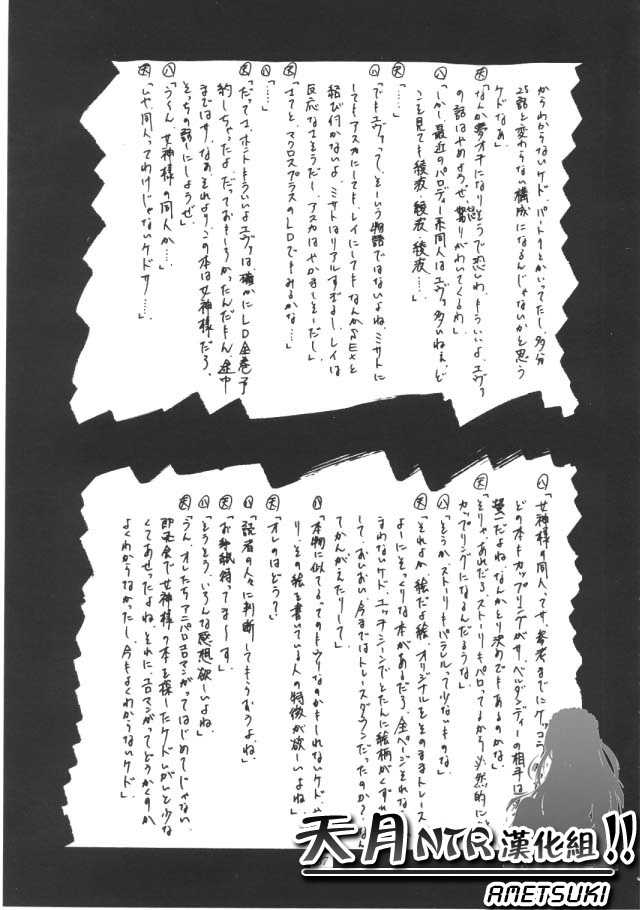 かうわからないケド、パート1とかいってたし、多分
25話と変わらない構成になるんじゃないかと思う
ケドなぁ」
天「なんか夢オチになりそうで恐いわ、もういいよ、エヴァ
の話はやめようぜ、怒りがわいてくるわ」
八「しかし最近のパロディー系同人はエヴァ多いねぇ、ど
こを見ても綾波、綾波、綾波……」
天「……」
八「でもエヴァって、そーいう物語ではないよね、ミサトに
してもアスカにしても、レイにしてもなんかSEXと
結び付かないよ、ミサトはリアルすぎるし、レイは
反応なさそうだし、アスカはやかましそーだし」
天「さてと、マクロスプラスのLDでもみるかな……」
八「……」
天「だってさ、ホントもういいよエヴァは、確かにLD全巻予
約しちゃったよ、だっておもしろかったんだもん、途中
まではサ、なぁ、それより、この本は女神様だろ、
そっちの話にしようぜ」
八「うーん、女神様の同人か……」
天「いや、同人ってわけじゃないケドサ……」
八「女神様の同人ってサ、参考までにケッコー
どの本もカップリングがサ、ベルダンディーの相手は
螢一だよね、なんかとり決めでもあるのかな」
天「そりゃあれだろ、ストーリもパロってるから必然的に
カップリングになるんだろうな」
八「そうか、ストーリもパラレルって少ないものね」
天「それよか絵だよ絵、オリジナルをそのままトレース
よーにそっくりな本があるだろ、全ページそれな
まわないケド、エッチシーンでとたんに絵柄がくずれ
して、おいおい、今まではトレースダウンだったのか?
てかんがえたりして」
八「本物に似てるってのもウリなのかもしれないケド、
り、その絵を書いている人の特徴が欲しいよね」
天「オレのは、どう?」
八「読者の人々に判断してもらおうよね」
天「お手紙待ってま〜す」
八「そうそう、いろんな感想欲しいよね」
天「うん、オレたちアニパロエロマンガってはじめてじゃない、
即売会で女神様の本を探したケド、いがいと少な
くてあせったよね、それにエロマンガってどうかくのか
よくわからなかったし、今もよくわからないケド」
天月NTR漢化組!!
AMETSUKI